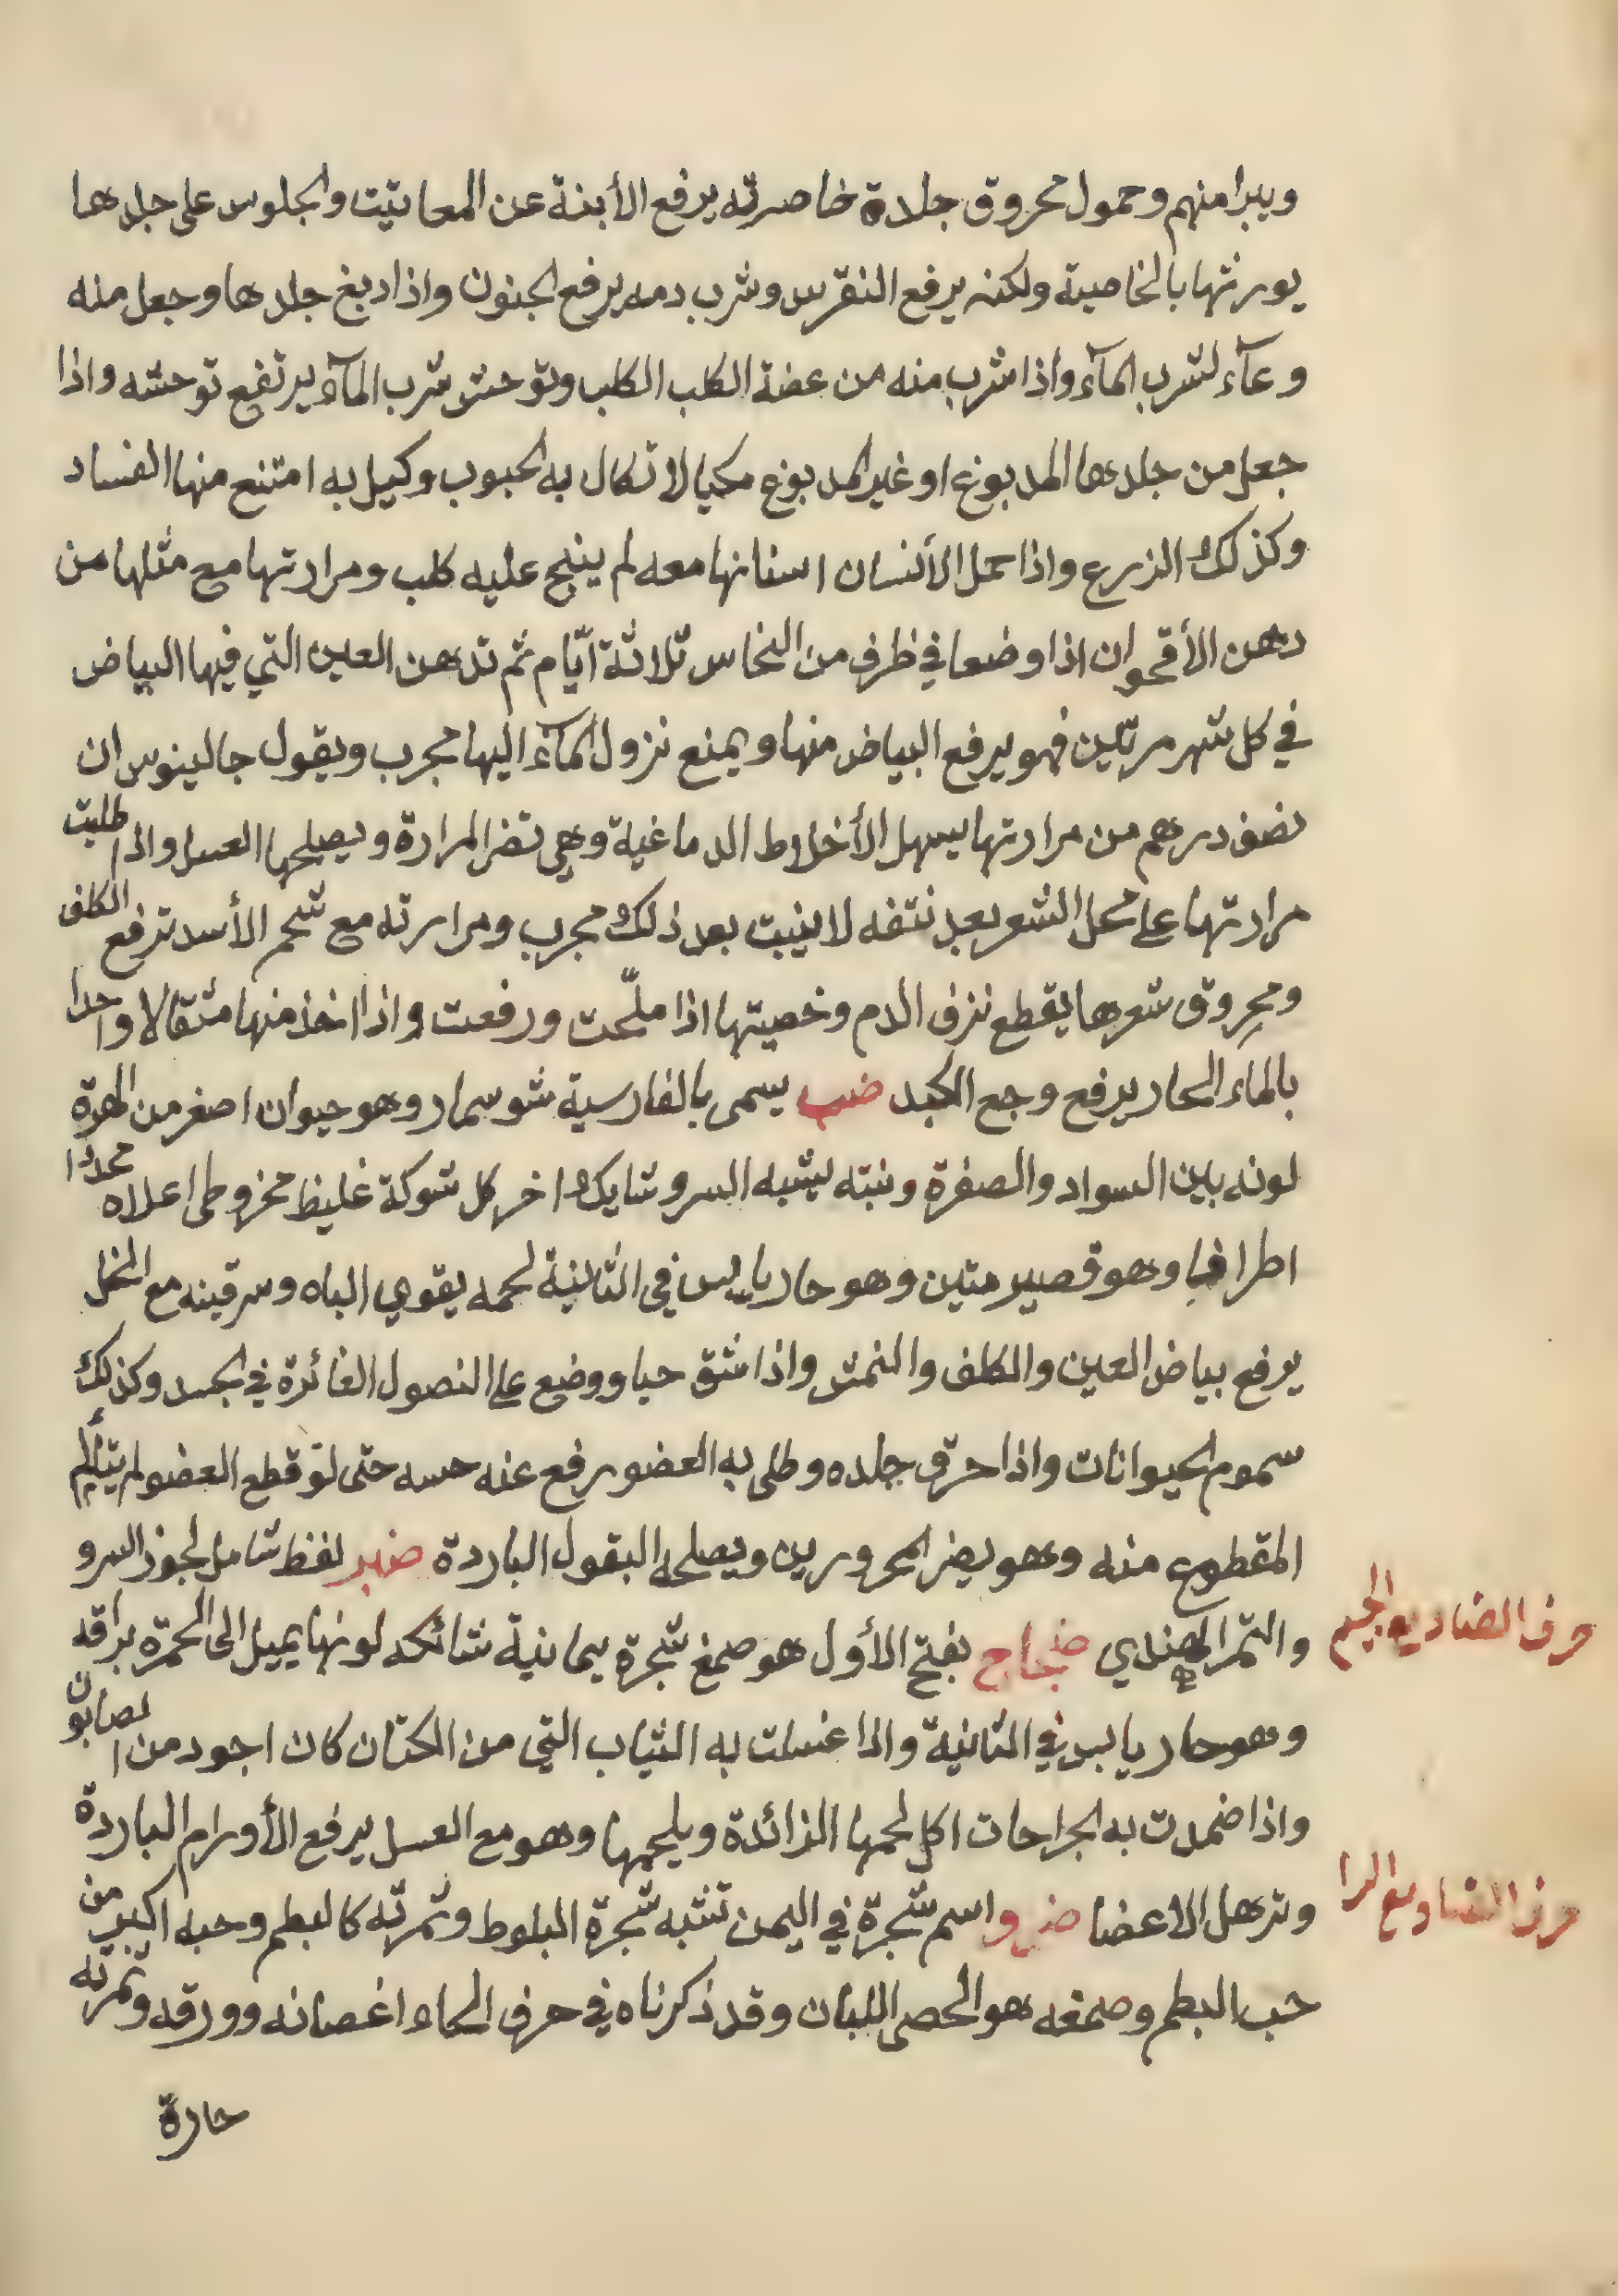 ويبرا منهم وحمول محروق جلدة خاصرته يرفع الأبنة عن المعابيت والجلوس على جلدها
يورثها بالخاصية ولكنه يرفع النقرس وشرب دمه يرفع الجنون واذا دبغ جلدها وجعل منه
وعآء لشرب المآء واذا شرب منه من عضة الكلب الكلب وتوحش شرب المآء يرتفع توحشه واذا
جعل من جلدها المدبوغ او غير المدبوغ مكيالا تكال به الحبوب وكيل به امتنع منها الفساد
وكذلك الزرع واذا حمل الأنسان اسنانها معه لم ينبح عليه كلب ومرارتها مع مثلها من
دهن الأقحوان اذا وضعا في ظرف من النحاس ثلاثة ايّام ثم تدهن العين التي فيها البياض
في كل شهر مرتين فهو يرفع البياض منها ويمنع نزول المآء اليها مجرب ويقول جالينوس ان
نصف درهم من مرارتها يسهل الأخلاط الدماغية وهي تضر المرارة ويصلحها العسل واذا طليت
مرارتها على محل الشعر بعد نتفه لا ينبت بعد ذلك مجرب ومرارته مع شحم الأسد ترفع الكلف
ومحروق شعرها يقطع نزف الدم وخصيتها اذا ملّحت ورفعت واذا اخذ منها مثقالا واحدا
بالماء الحار يرفع وجع الكبد ضب يسمى بالفارسية شوسمار وهو حيوان اصغر من الهرة
لونه بين السواد والصفرة ونبته يشبه السرو شايك اخر كل شوكة غليظ مخروطى اعلاه محددا
اطرافها وهو قصير متين وهو حار يابس في الثانية لحمه يقوي الباه وسرقينه مع الخل
يرفع بياض العين والكلف والنمش واذا شق حيا ووضع على النصول الغائرة في الجسد وكذلك
سموم الحيوانات واذا حرق جلده وطلى به العضو رفع عنه حسه حتى لو قطع العضو لم يتألم
المقطوع منه وهو يضر المحرورين ويصلحه البقول الباردة ضبر لفظ شامل لجوز السرو
والتمر الهندي ضجاج بفتح الأول هو صمغ شجرة يمانية شائكه لونها يميل الى الحمرة براقه
حرف الضاد مع الجيم
وهو حار يابس في الثانية واذا غسلت به الثياب التي من الكتان كان اجود من الصابون
واذا ضمدت به الجراحات اكل لحمها الزائدة ويلحمها وهو مع العسل يرفع الأورام الباردة
وترهل الاعضا ضرو اسم شجرة في اليمن تشبه شجرة البلوط وثمرته كالبطم وحبه اكبر من
حرف الضاد مع الرا
حب البطم وصمغه هو الحصى اللبان وقد ذكرناه في حرف الحاء اغصانه وورقه وثمرته
حارة